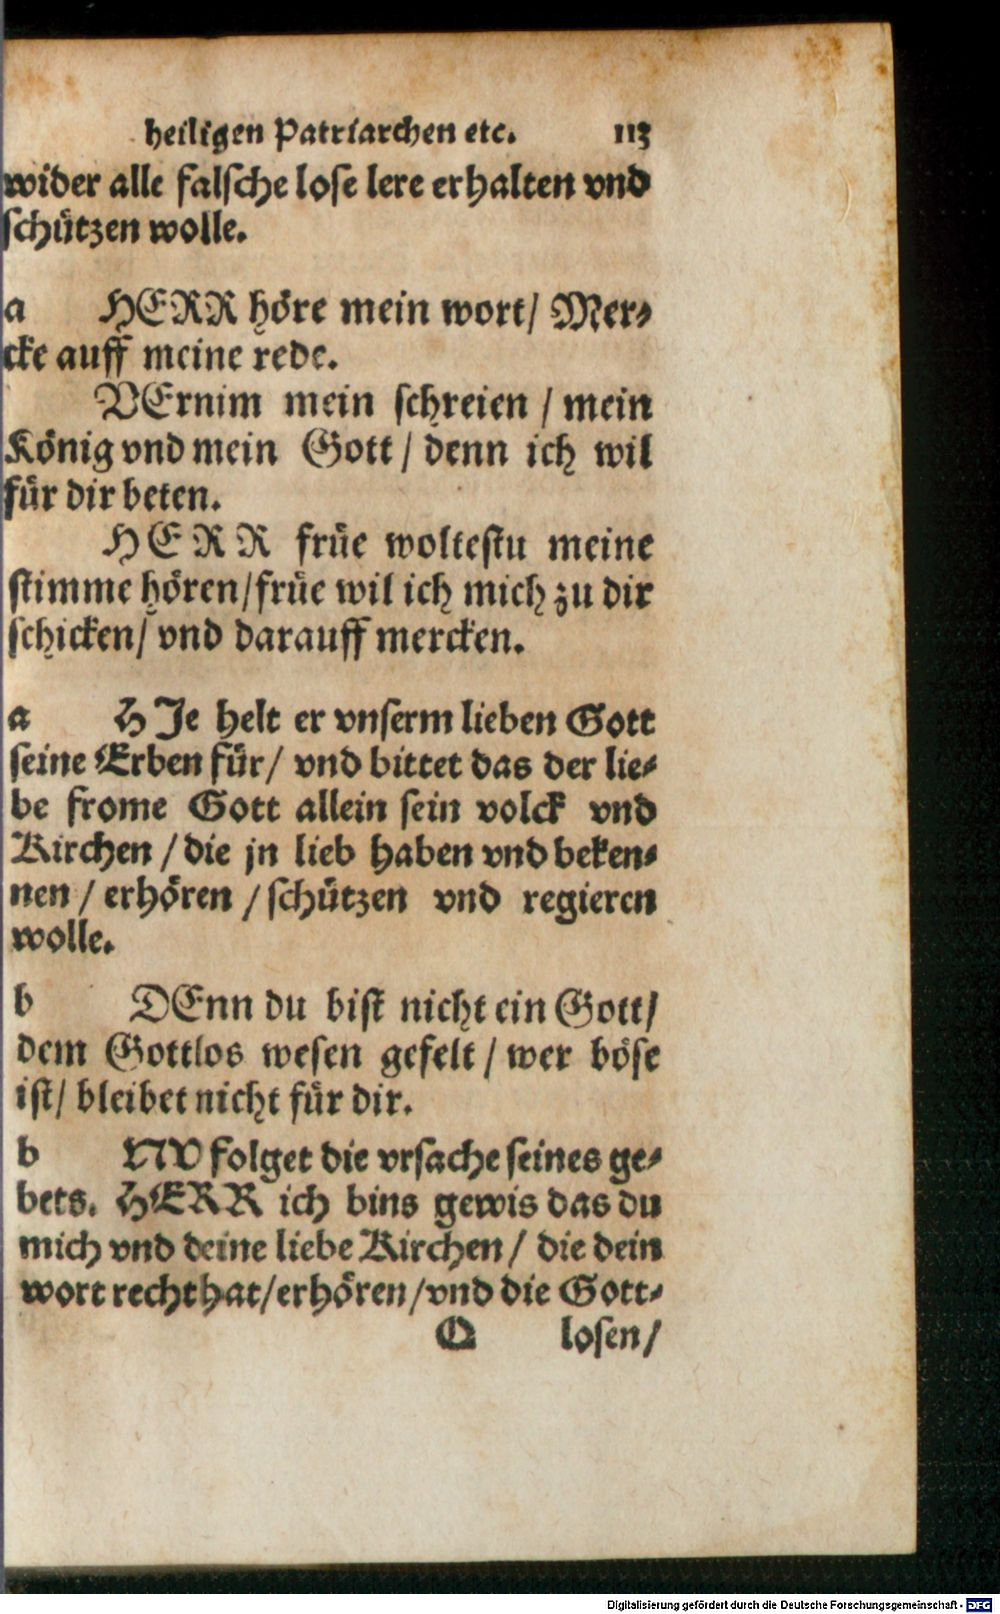 heiligen Patriarchen etc. 113
wider alle falsche lose lere erhalten vnd
schützen wolle.
a HERR höre mein wort/ Mer⸗
cke auff meine rede.
VErnim mein schreien / mein
König vnd mein Gott / denn ich wil
für dir beten.
HERR früe woltestu meine
stimme hören/ früe wil ich mich zu dir
schicken/ vnd darauff mercken.
a HJe helt er vnserm lieben Gott
seine Erben für/ vnd bittet das der lie⸗
be frome Gott allein sein volck vnd
Kirchen / die jn lieb haben vnd beken⸗
nen / erhören / schützen vnd regieren
wolle.
b DEnn du bist nicht ein Gott/
dem Gottlos wesen gefelt / wer böse
ist/ bleibet nicht für dir.
b NV folget die vrsache seines ge⸗
bets. HERR ich bins gewis das du
mich vnd deine liebe Kirchen / die dein
wort recht hat/ erhören / vnd die Gott⸗
Q losen/
Digitalisierung gefördert durch die Deutsche Forschungsgemeinschaft - DFG